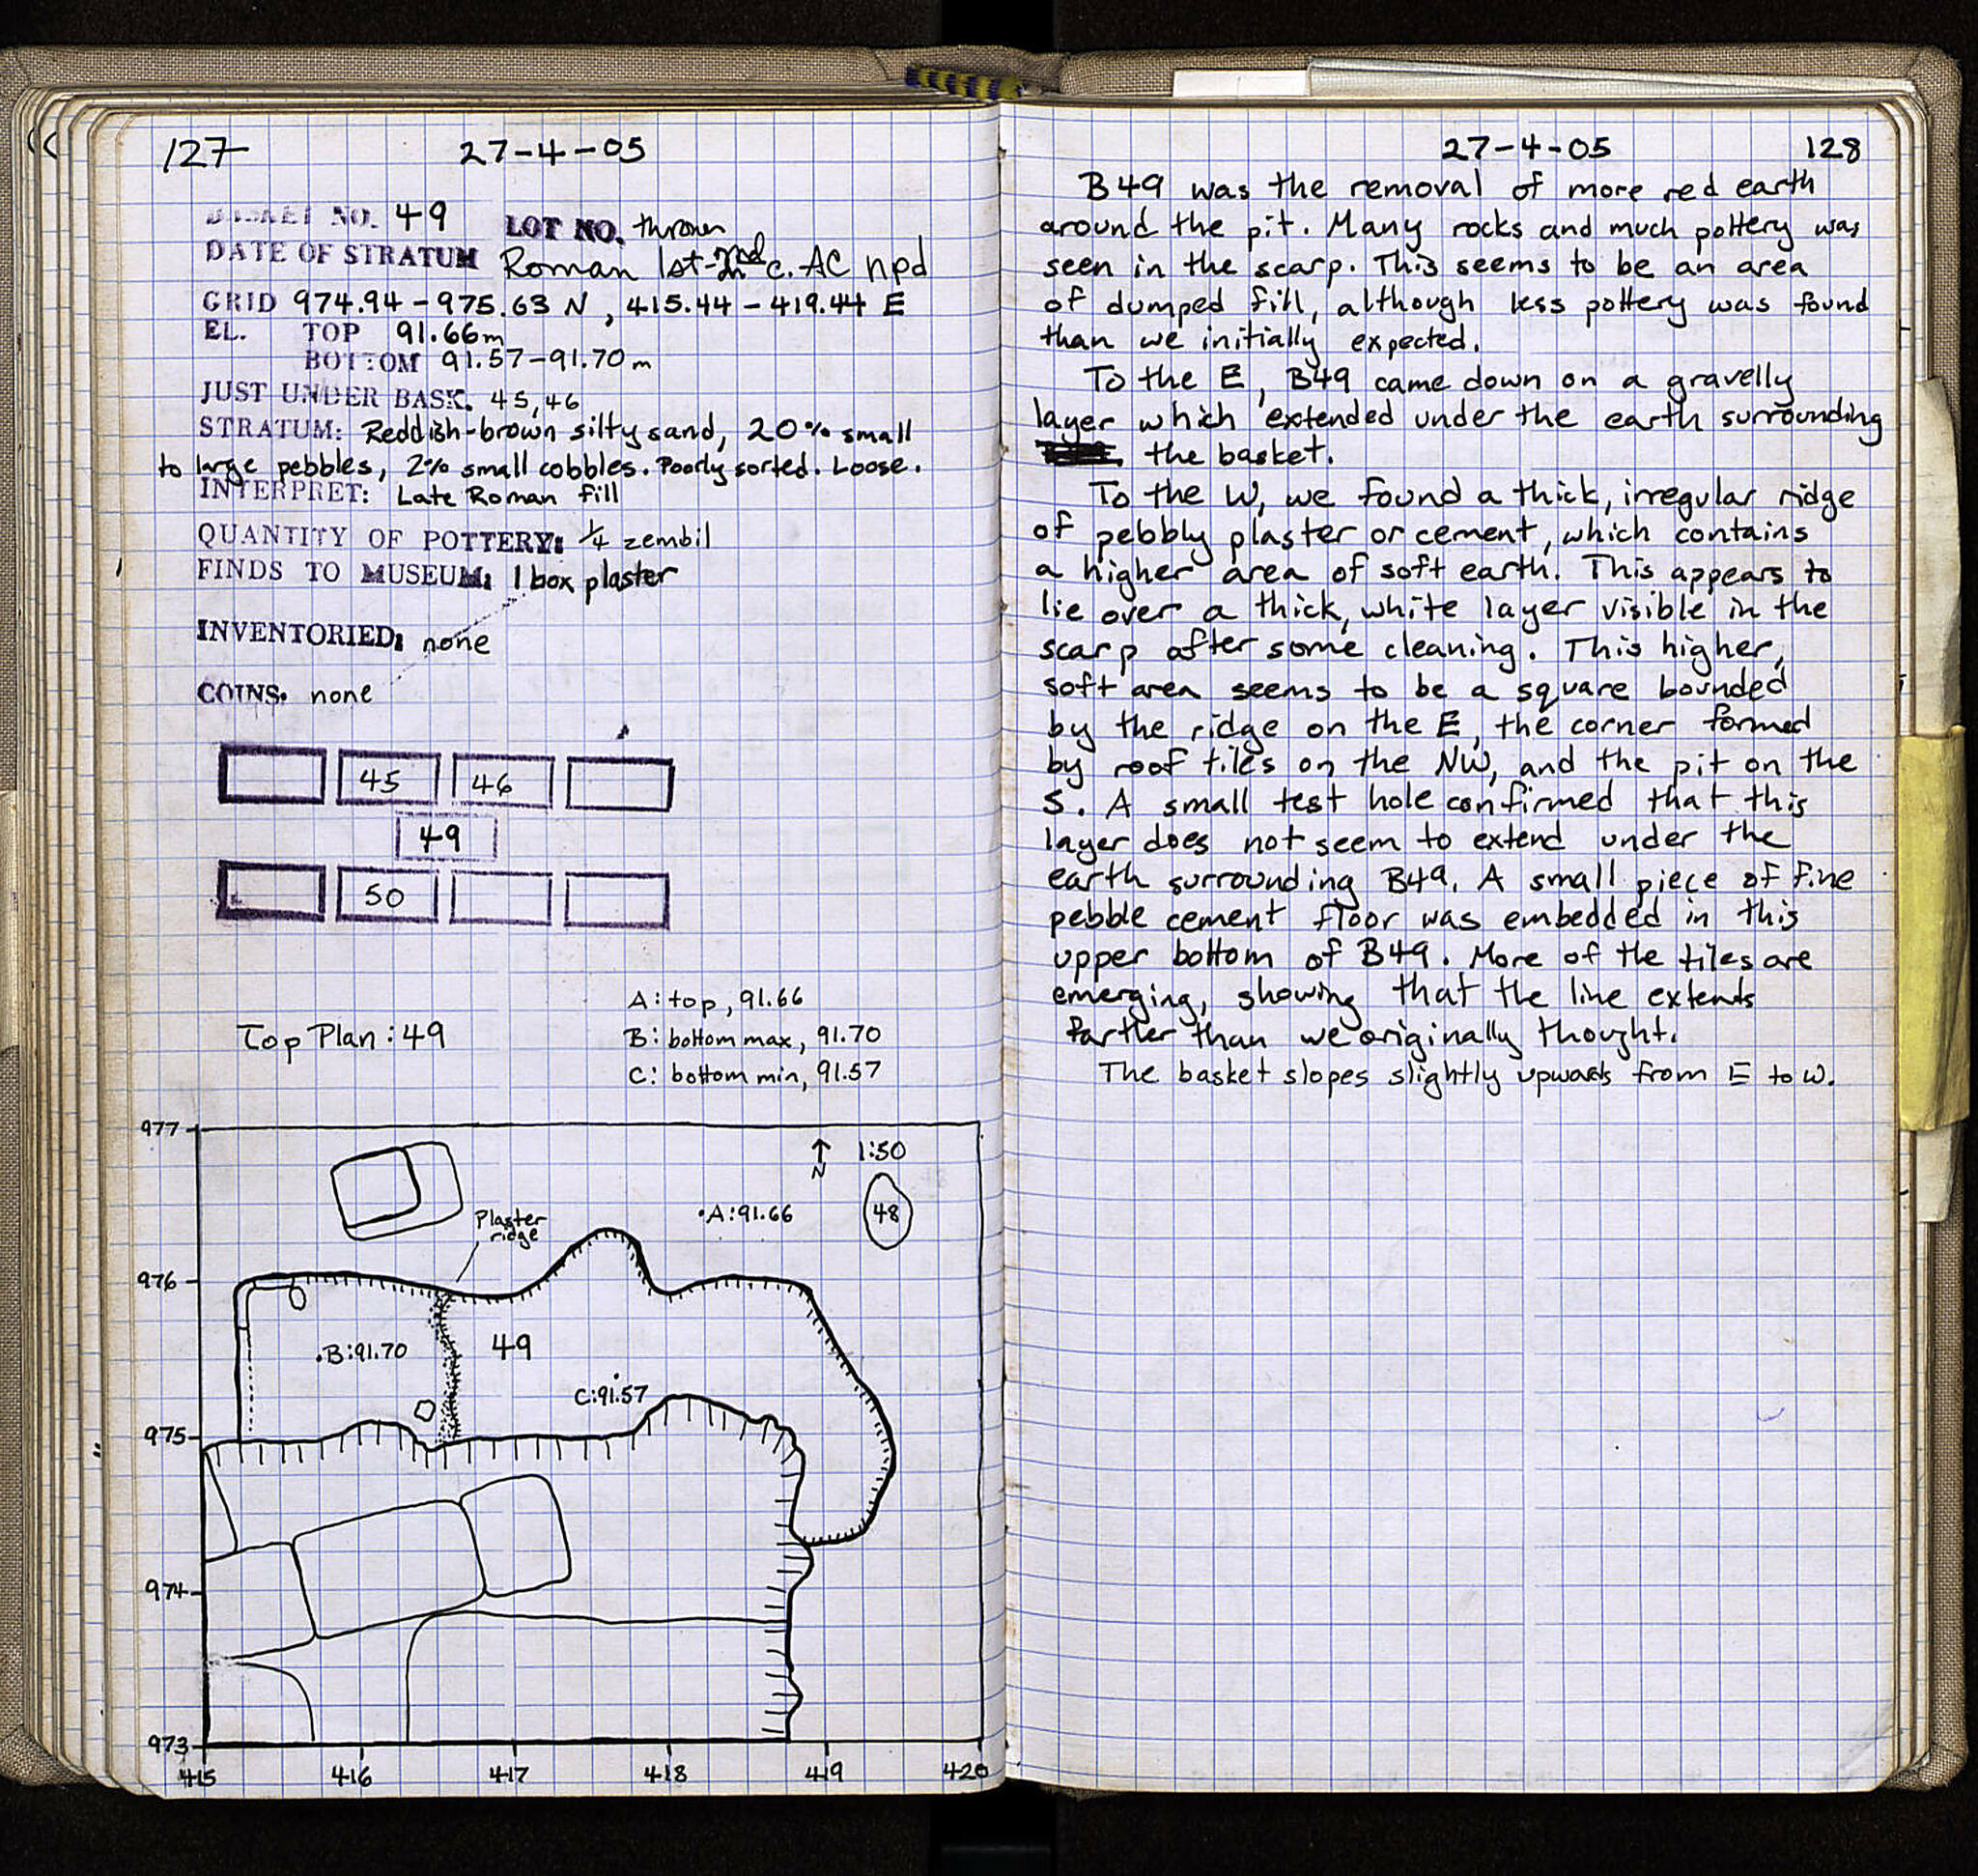 127 27-4-05
BASKET NO. 49 LOT NO. thrown
DATE OF STRATUM Roman 1st-2nd c. AC npd
GRID 974.94-975.63 N, 415.44-419.44 E
EL. TOP 91.66m
BOTTOM 91.57-91.70m
JUST UNDER BASK. 45,46
STRATUM: Reddish-brown silty sand, 20% small
to large pebbles, 2% small cobbles. Poorly sorted. Loose.
INTERPRET: Late Roman fill
QUANTITY OF POTTERY: 1/4 zembil
FINDS TO MUSEUM: 1 box plaster
INVENTORIED: none
COINS. none
45 46
49
50
A: top, 91.66
Top Plan: 49
B: bottom max, 91.70
C: bottom min, 91.57
977
1:50
N
Plaster
ridge
A:91.66
48
976
B:91.70
49
C:91.57
975
974
973
415 416 417 418 419 420
27-4-05 128
B49 was the removal of more red earth
around the pit. Many rocks and much pottery was
seen in the scarp. This seems to be an area
of dumped fill, although less pottery was found
than we initially expected.
To the E, B49 came down on a gravelly
layer which extended under the earth surrounding
the basket.
To the W, we found a thick, irregular ridge
of pebbly plaster or cement, which contains
a higher area of soft earth. This appears to
lie over a thick, white layer visible in the
scarp after some cleaning. This higher,
soft area seems to be a square bounded
by the ridge on the E, the corner formed
by roof tiles on the NW, and the pit on the
S. A small test hole confirmed that this
layer does not seem to extend under the
earth surrounding B49. A small piece of fine
pebble cement floor was embedded in this
upper bottom of B49. More of the tiles are
emerging, showing that the line extends
farther than we originally thought.
The basket slopes slightly upwards from E to W.